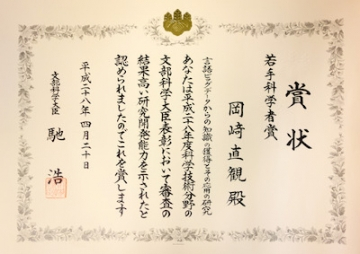 賞状
若手科学者賞
岡﨑直観殿
言語ビッグデータからの知識の獲得とその応用の研究
あなたは平成二八年度科学技術分野の
文部科学大臣表彰において審査の
結果高い研究開発能力を示されたと
認められましたのでこれを賞します
平成二八年四月二十日
文部科学大臣 馳浩